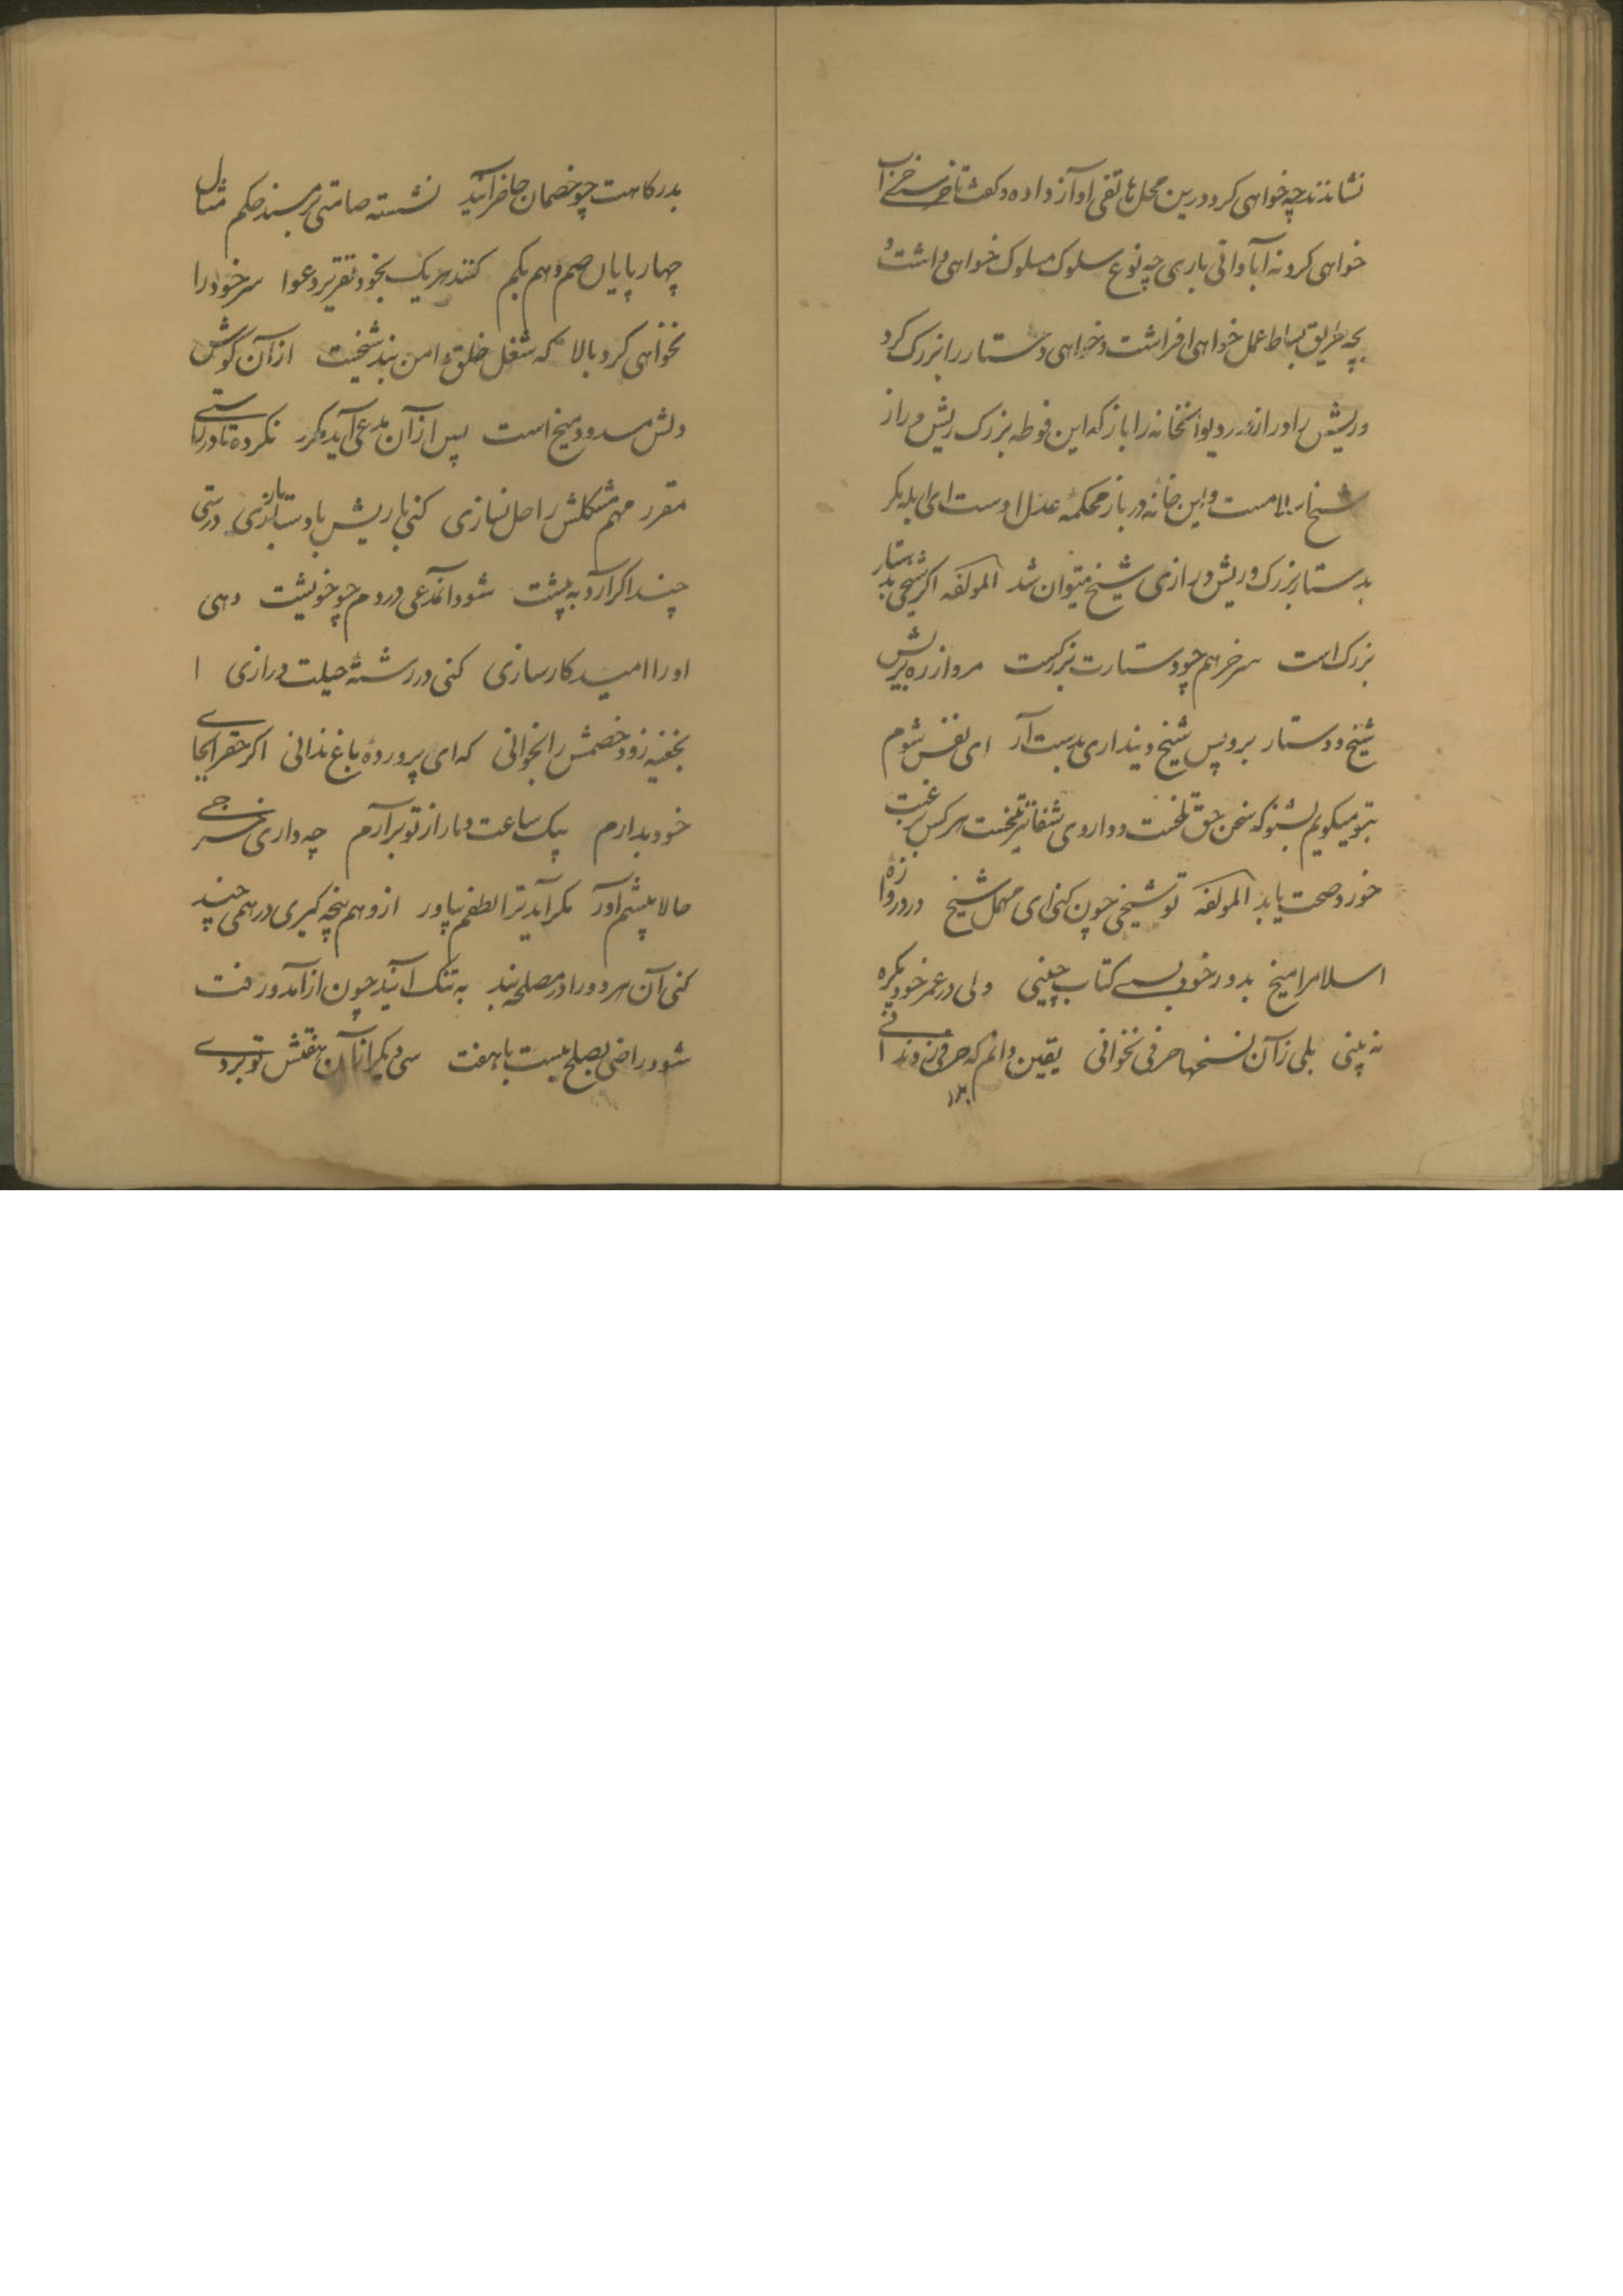 نشانند چه خواهی کرد درین محل هاتفی آواز داده و گفت تا خر سخر خراب
خواهی کرد نه آباوانی باری چه نوع سلوک مسلوک خواهی داشت و
بچه طریق بساط عمل خواهی افراشت و خواهی دستار را بزرک کرد
و ریش را دراز و در دیوانخانه را باز که این فوطه بزرک ریش دراز
شیخ اسلامست و این خانه در باز محکمه عدل اوست ای ابله بکر
بدستار بزرک و ریش درازی شیخ میتوان شد المولفه اگر شیخی بدستار
بزرک است سر خر هم چو دستارت بزرکست مرو از ره بریش
شیخ و دستار برو پس شیخ دینداری بدست آر ای نفس شوم
بتو میکویم بشنو که سخن حق تلخست و داروی شفا نیز تلخست هر کس برغبت
خورد صحت یابد المولفه تو شیخی چون کنی ای مهمل شیخ در دروازه
اسلام را میخ بدور خود بسے کتاب چینی ولی در عمر خود یکره
نه بینی بلی زآن نسخها حرفی نخوانی یقین دانم که حرفی زو ندانے
بدر
بدرکاهت چو خصمان حاضر آیند نشسته صامتی پرسند حکم مثال
چهار پایان صم و هم بکم کنند هر یک بخود تقریر دعوا سر خود را
نخواهی کرد بالا که شغل خلق دامن بند شیخیت از آن گوش
دلش مسدود میخ است پس از آن مدعی آید مکرر نکرده تا در راستے
مقرر مهم مشکلش را حل نسازی کنی با ریش با دستار بازی درستی
چند اکر آرد به پیشت شود آن مدعی در دم چو خویشت دهی
او را امید کارسازی کنی در رشتهٔ حیلت درازی ا
بخفیه زود خصمش را بخوانی که ای پروردهٔ باغ ندانی اکر حقر ایجاے
خود بدارم بیک ساعت دمار از تو برآرم چه داری خرجے
حالا پیشم آور مکر آید ترا لطفم بیاور ازو هم پنجه کیری درهمی چند
کنی آن هر دو را در مصلحه بند به تنک آیند چون از آمد و رفت
شود راضی بصلح بیست با هفت سی دیکر از آن نقش تو بردے